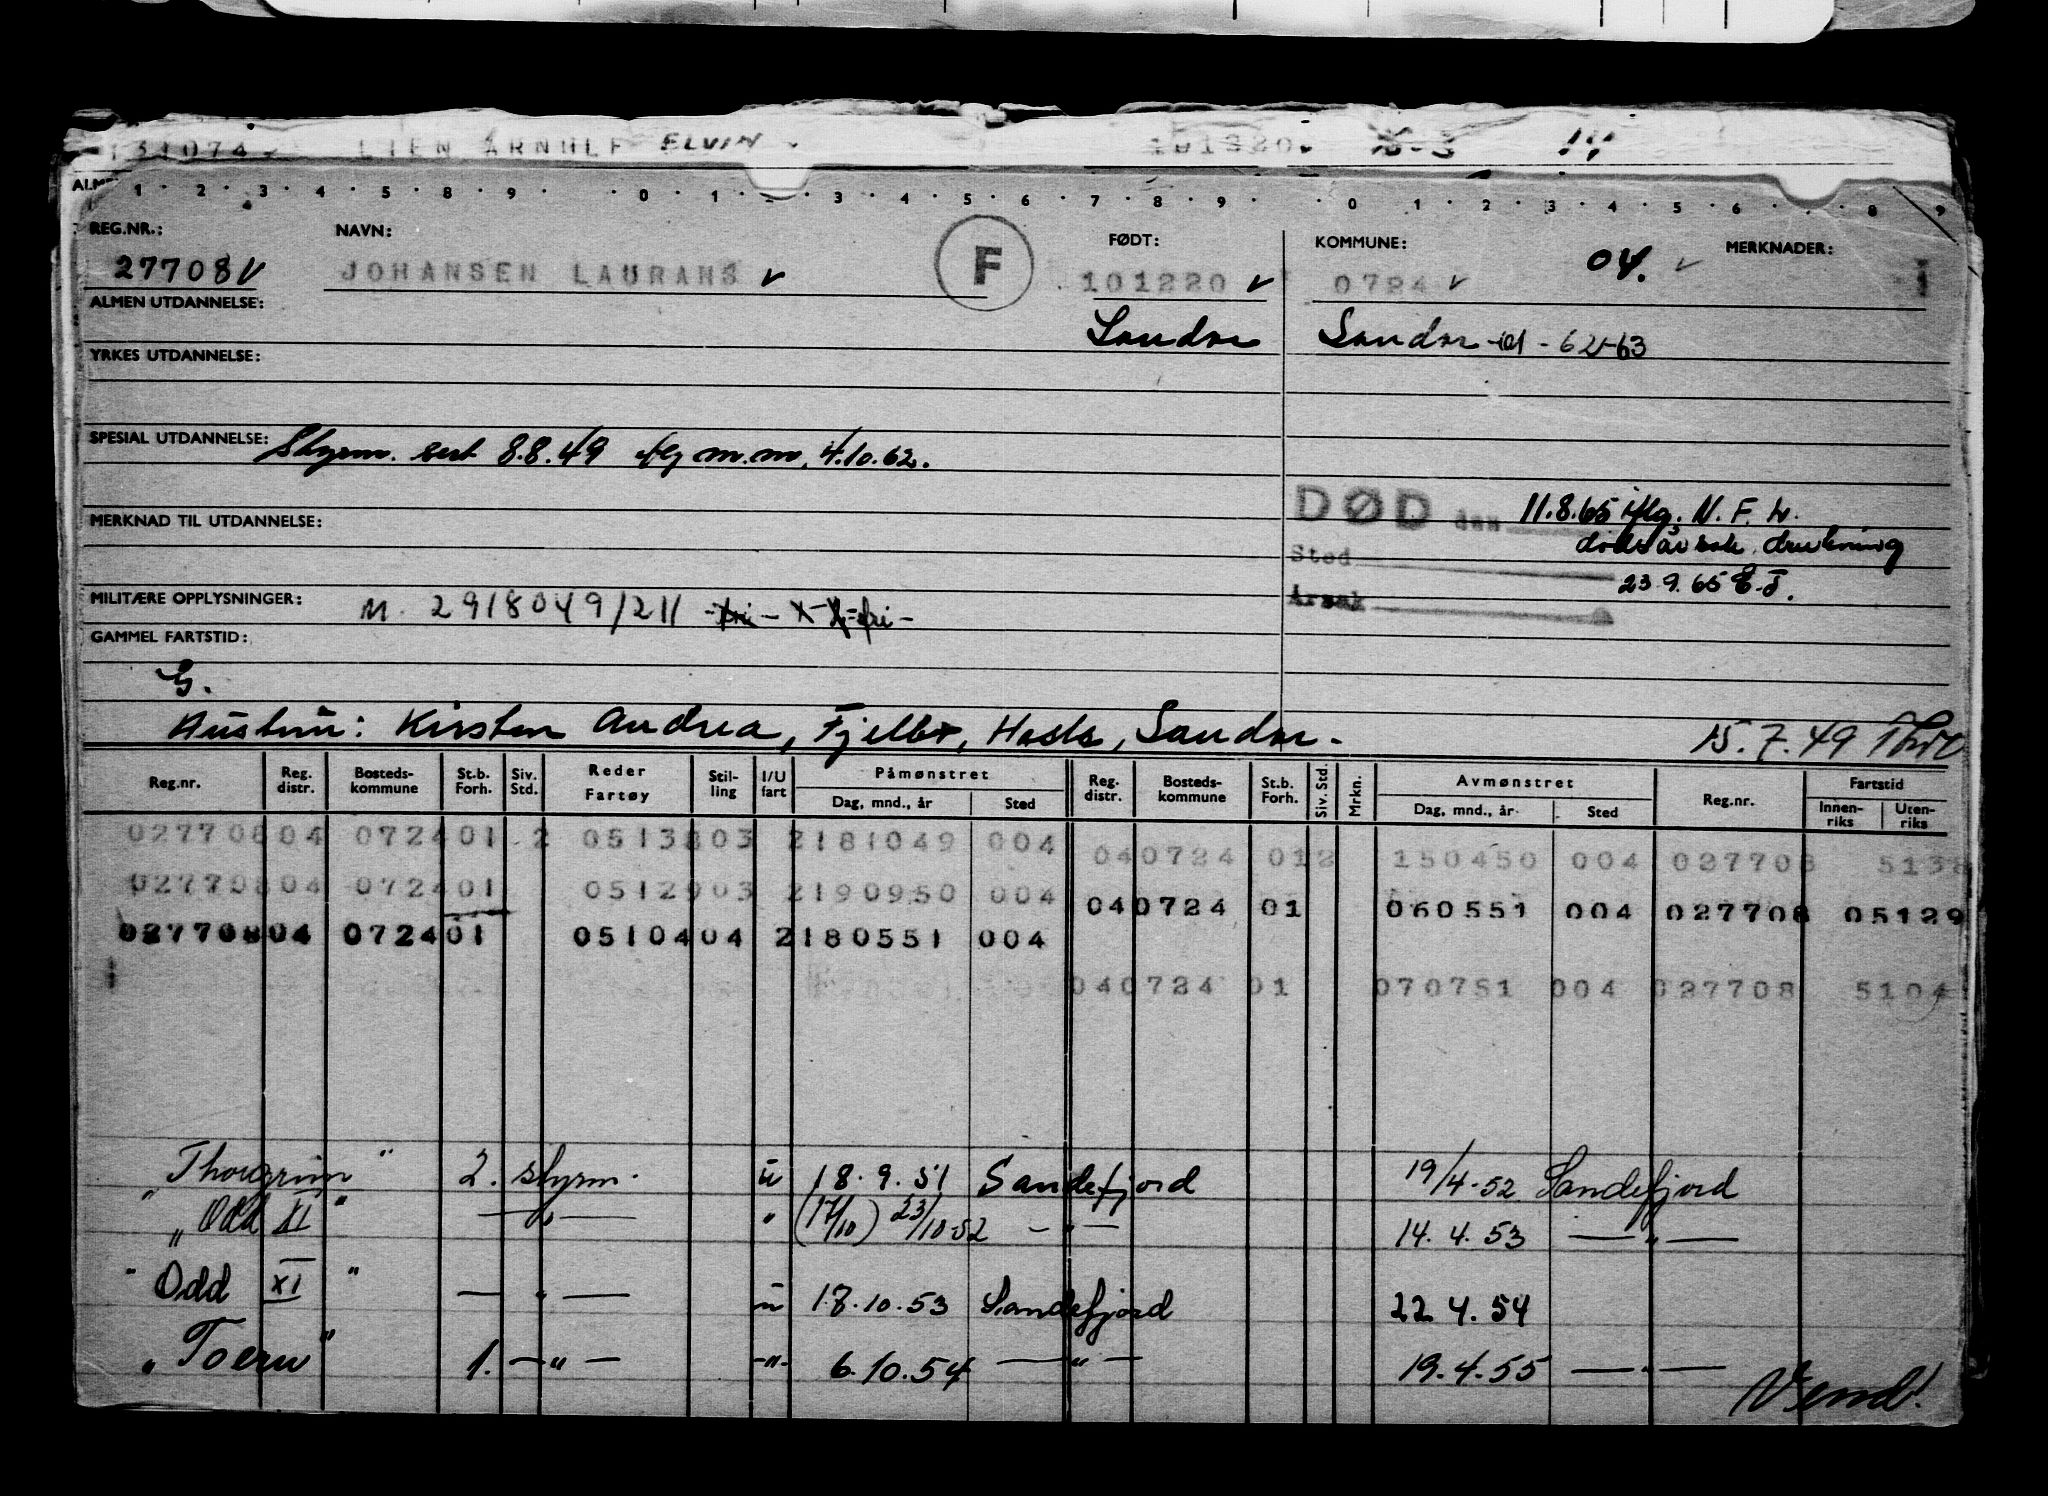 131074 LIEN ARNULF ELVIN 101320
1 · 2 · 3 · 4 · 5 · 8 · 9 · 0 · 1 · 2 · 3 · 4 · 5 · 6 · 7 · 8 · 9 · 0 · 1 · 2 · 3 · 4 · 5 · 6 · 8 · 9
REG.NR.: NAVN: F FØDT: KOMMUNE: 04. MERKNADER:
277081 JOHANSEN LAURANS 101220 0724
ALMEN UTDANNELSE: Sandar Sandar 62-63
YRKES UTDANNELSE:
SPESIAL UTDANNELSE: Styrm. sert 8.8.49 m.m. 4.10.62.
DØD den 11.8.65 iflg. N. F. L.
MERKNAD TIL UTDANNELSE:
Sted dødsårsak drukning
Årsak 23.9.65 E.T.
MILITÆRE OPPLYSNINGER: M. 2918049/211 fri
GAMMEL FARTSTID:
G.
Hustru: Kirsten Andrea, Fjellv, Hasle, Sandar. 15.7.49
Reg.nr. Reg. distr. Bosteds- kommune St.b. Forh. Siv. Std. Reder Fartøy Stil- ling I/U fart Påmønstret Dag, mnd., år Sted Reg. distr. Bosteds- kommune St.b. Forh. Siv. Std. Mrkn. Avmønstret Dag, mnd., år Sted Reg.nr. Fartstid Innen- riks Uten- riks
027708 04 0724 01 2 0513803 2 181049 004 04 0724 01 2 150450 004 027708 5138
027708 04 0724 01 0512903 2 190950 004 04 0724 01 060551 004 027708 05129
027708 04 0724 01 0510404 2 180551 004
04 0724 01 070751 004 027708 5104
Thorgrim " 2. styrm. u 18.9.51 Sandefjord 19/4-52 Sandefjord
" Odd XI " — " — " (17/10) 23/10-52 — " — 14.4.53 — " —
" Odd XI " — " — u 18.10.53 Sandefjord 22.4.54
" Toern " 1. — " — -"- 6.10.54 — " — 19.4.55 — " —
Vend!